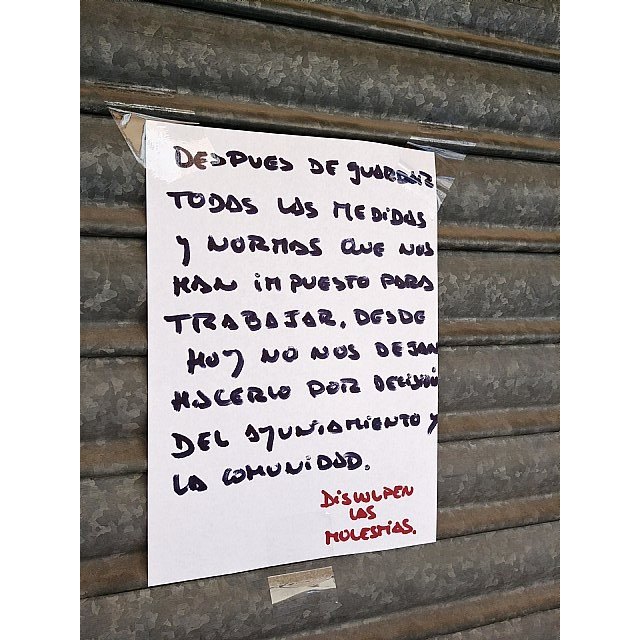 DESPUES DE GUARDAR
TODAS LAS MEDIDAS
Y NORMAS QUE NOS
HAN IMPUESTO PARA
TRABAJAR, DESDE
HOY NO NOS DEJAN
HACERLO POR DECISIÓN
DEL AYUNTAMIENTO Y
LA COMUNIDAD.
DISCULPEN
LAS
MOLESTIAS.